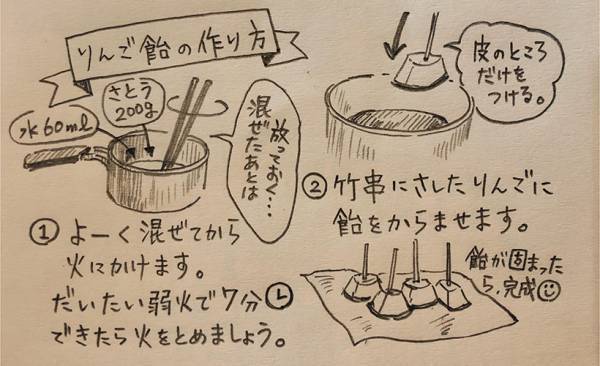 りんご飴の作り方
さとう
200g
水60ml
混ぜたあとは
放っておく…
① よーく混ぜてから
火にかけます。
だいたい弱火で7分
できたら火をとめましょう。
皮のところ
だけを
つける。
② 竹串にさしたりんごに
飴をからませます。
飴が固まった
ら、完成